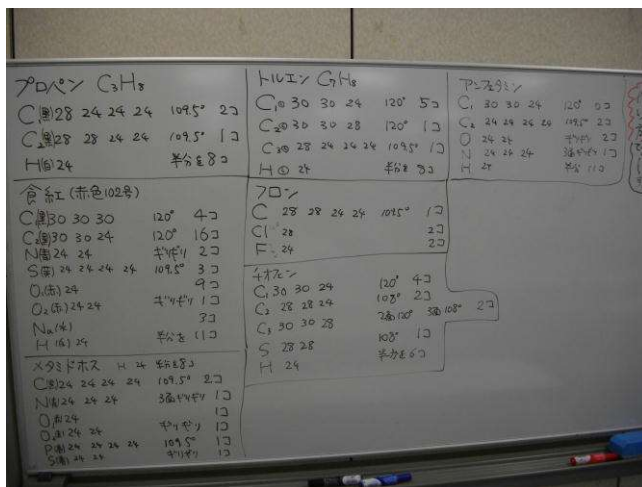 プロペン C3H8
C1(黒)28 24 24 24 109.5° 2コ
C2(黒)28 28 24 24 109.5° 1コ
H(白)24 半分を8コ
食紅(赤色102号)
C1(黒)30 30 30 120° 4コ
C2(黒)30 30 24 120° 16コ
N(青)24 24 ギリギリ 2コ
S(黄)24 24 24 24 109.5° 3コ
O1(赤) 9コ
O2(赤)24 24 ギリギリ 1コ
Na 3コ
H(白)24 半分を11コ
メタミドホス H 24 半分を8コ
C(黒)24 24 24 24 109.5° 2コ
N(青)24 24 24 3面ギリギリ 1コ
O1(赤)24 1コ
O2(赤)24 24 ギリギリ 1コ
P 24 24 24 24 109.5° 1コ
S(黄)24 24 ギリギリ 1コ
トルエン C7H8
C1 30 30 24 120° 5コ
C2 30 30 28 120° 1コ
C3 28 24 24 24 109.5° 1コ
H 24 半分を
フロン
C 28 28 24 24 109.5° 1コ
Cl 28 2コ
F 24 2コ
チオフェン
C1 30 30 24 120° 4コ
C2 28 28 24 108° 2コ
C3 30 30 28 2面120° 3面108° 2コ
S 28 28 108° 1コ
H 24 半分を6コ
アンフェタミン
C1 30 30 24 120°
C2 24 24 24 24 109.5° 2コ
O 24 24 ギリギリ 2コ
N 24 24 24 3面ギリギリ 1コ
H 24 半分 11コ